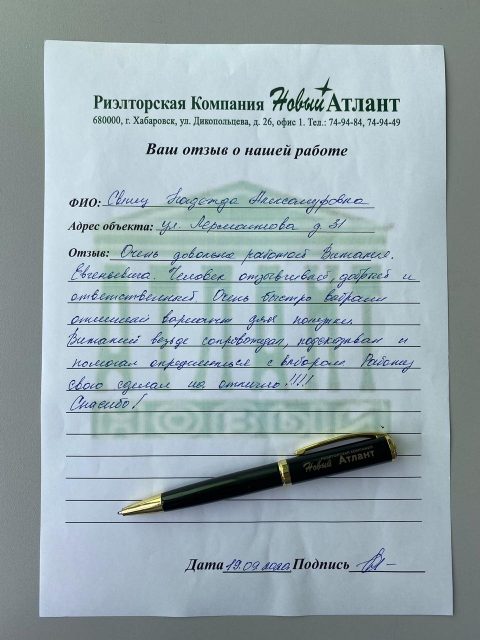 Риэлторская Компания Новый Атлант
680000, г. Хабаровск, ул. Дикопольцева, д. 26, офис 1. Тел.: 74-94-84, 74-94-49
Ваш отзыв о нашей работе
ФИО: Надежда Александровна
Адрес объекта: ул. Лермонтова д 31
Отзыв: Очень довольна работой Виталия
Евгеньевича. Человек отзывчивый, добрый и
ответственный. Очень быстро выбрали
отличный вариант для покупки.
Виталий везде сопровождал, подсказывал и
помогал определиться с выбором. Работу
свою сделал на отлично!!!!
Спасибо!
риэлторская компания
Новый Атлант
Дата Подпись